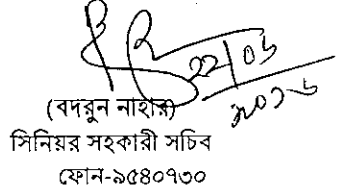 ২২/০৬
২০১৬
(বদরুন নাহার)
সিনিয়র সহকারী সচিব
ফোন-৯৫৪০৭৩০